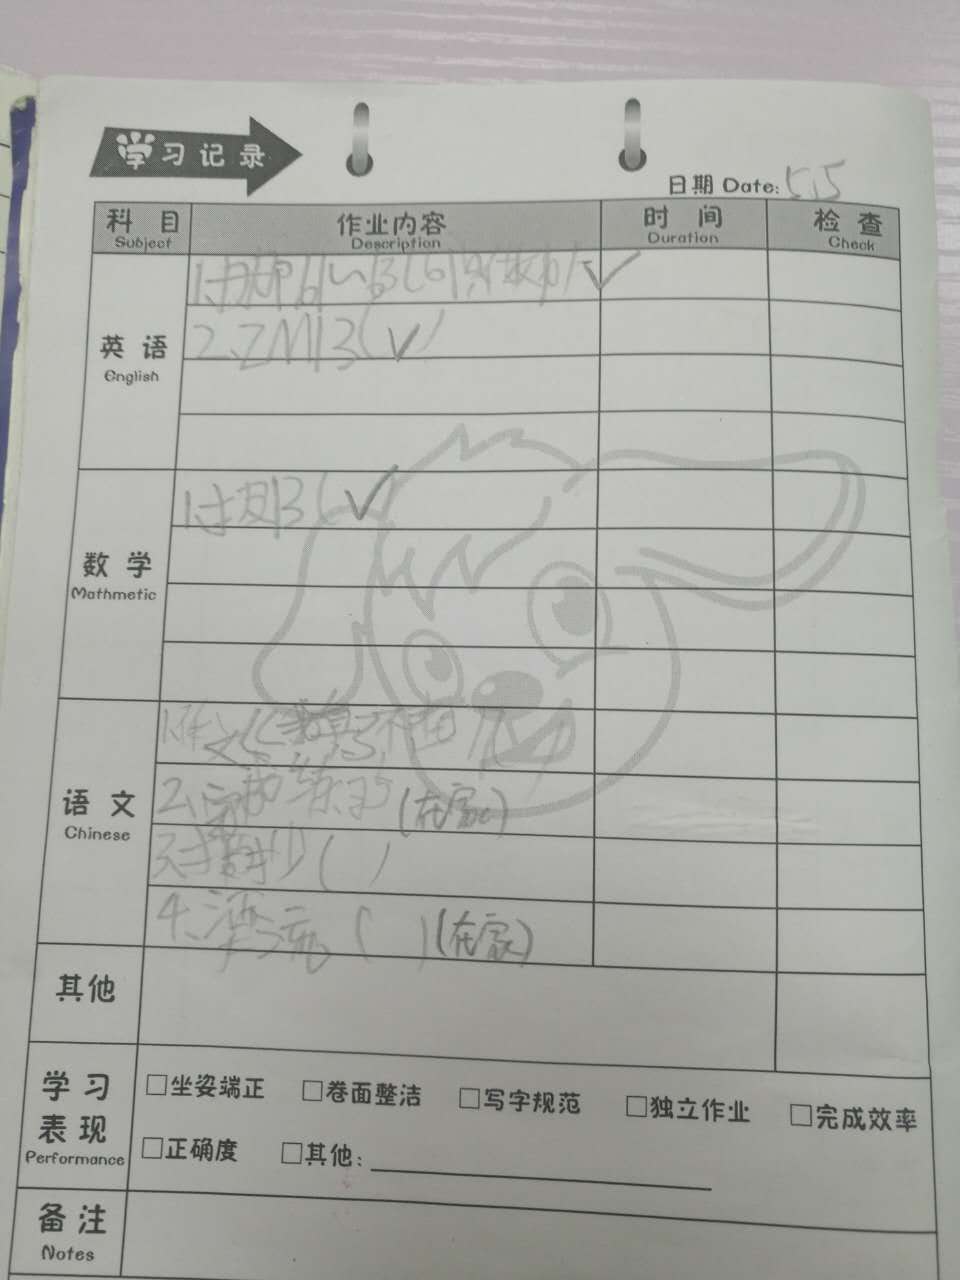 学习记录
日期 Date: 5.15
科目 Subject
作业内容 Description
时间 Duration
检查 Check
英语 English
1.
2. M13(✓)
数学 Mathmetic
1. 13(✓)
语文 Chinese
1.作文
2. 练习(在家)
3. ( )
4. ( )(在家)
其他
学习表现 Performance
□坐姿端正 □卷面整洁 □写字规范 □独立作业 □完成效率
□正确度 □其他:
备注 Notes